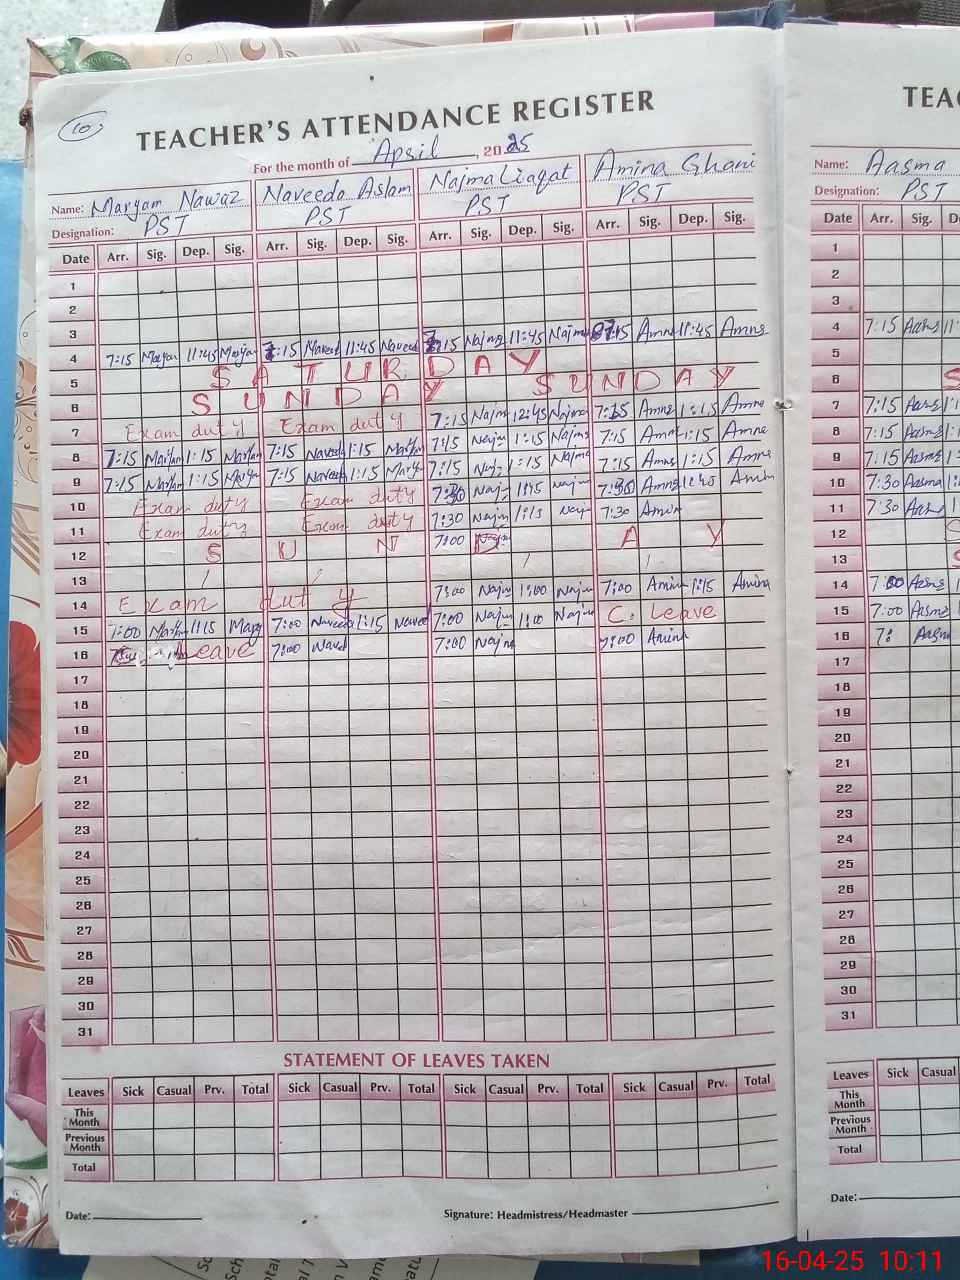 10
TEACHER'S ATTENDANCE REGISTER
For the month of April, 2025
Name: Maryam Nawaz Naveeda Aslam Najma Liaqat Amina Ghani
Designation: PST PST PST PST
Date Arr. Sig. Dep. Sig. Arr. Sig. Dep. Sig. Arr. Sig. Dep. Sig. Arr. Sig. Dep. Sig.
1
2
3
4 7:15 Maryam 11:45 Maryam 7:15 Naveed 11:45 Naveed 7:15 Najma 11:45 Najma 7:15 Amna 11:45 Amna
5 SATURDAY
6 SUNDAY SUNDAY
7 Exam duty Exam duty 7:15 Najma 12:45 Najma 7:15 Amna 1:15 Amna
8 7:15 Maryam 1:15 Maryam 7:15 Naveed 1:15 Maryam 7:15 Najma 1:15 Najma 7:15 Amna 1:15 Amna
9 7:15 Maryam 1:15 Maryam 7:15 Naveed 1:15 Maryam 7:15 Naj 1:15 Najma 7:15 Amna 1:15 Amna
10 Exam duty Exam duty 7:30 Naj 1:15 Naj 7:30 Amna Amin
11 Exam duty Exam duty 7:30 Najm 1:15 Naj 7:30 Amin
12 SUN 7:00 D A Y
13
14 Exam duty 7:00 Najm 1:00 Najm 7:00 Amina 1:15 Amina
15 7:00 Maryam 1:15 Mary 7:00 Naveed 1:15 Naveed 7:00 Najm 1:00 Najm C. Leave
16 Leave 7:00 Naved 7:00 Najm 7:00 Amina
17
18
19
20
21
22
23
24
25
26
27
28
29
30
31
STATEMENT OF LEAVES TAKEN
Leaves Sick Casual Prv. Total Sick Casual Prv. Total Sick Casual Prv. Total Sick Casual Prv. Total
This Month
Previous Month
Total
Date: Signature: Headmistress/Headmaster
TEAC
Name: Aasma
Designation: PST
Date Arr. Sig. De
1
2
3
4 7:15 Aasma 11:
5
6 S
7 7:15 Aasma 1
8 7:15 Aasma 1
9 7:15 Aasma 1:
10 7:30 Aasma 1:
11 7:30 Aasma 1
12 S
13 S
14 7:00 Aasma 1:
15 7:00 Aasma 1:
16 7: Aasm
17
18
19
20
21
22
23
24
25
26
27
28
29
30
31
Leaves Sick Casual
This Month
Previous Month
Total
Date:
16-04-25 10:11